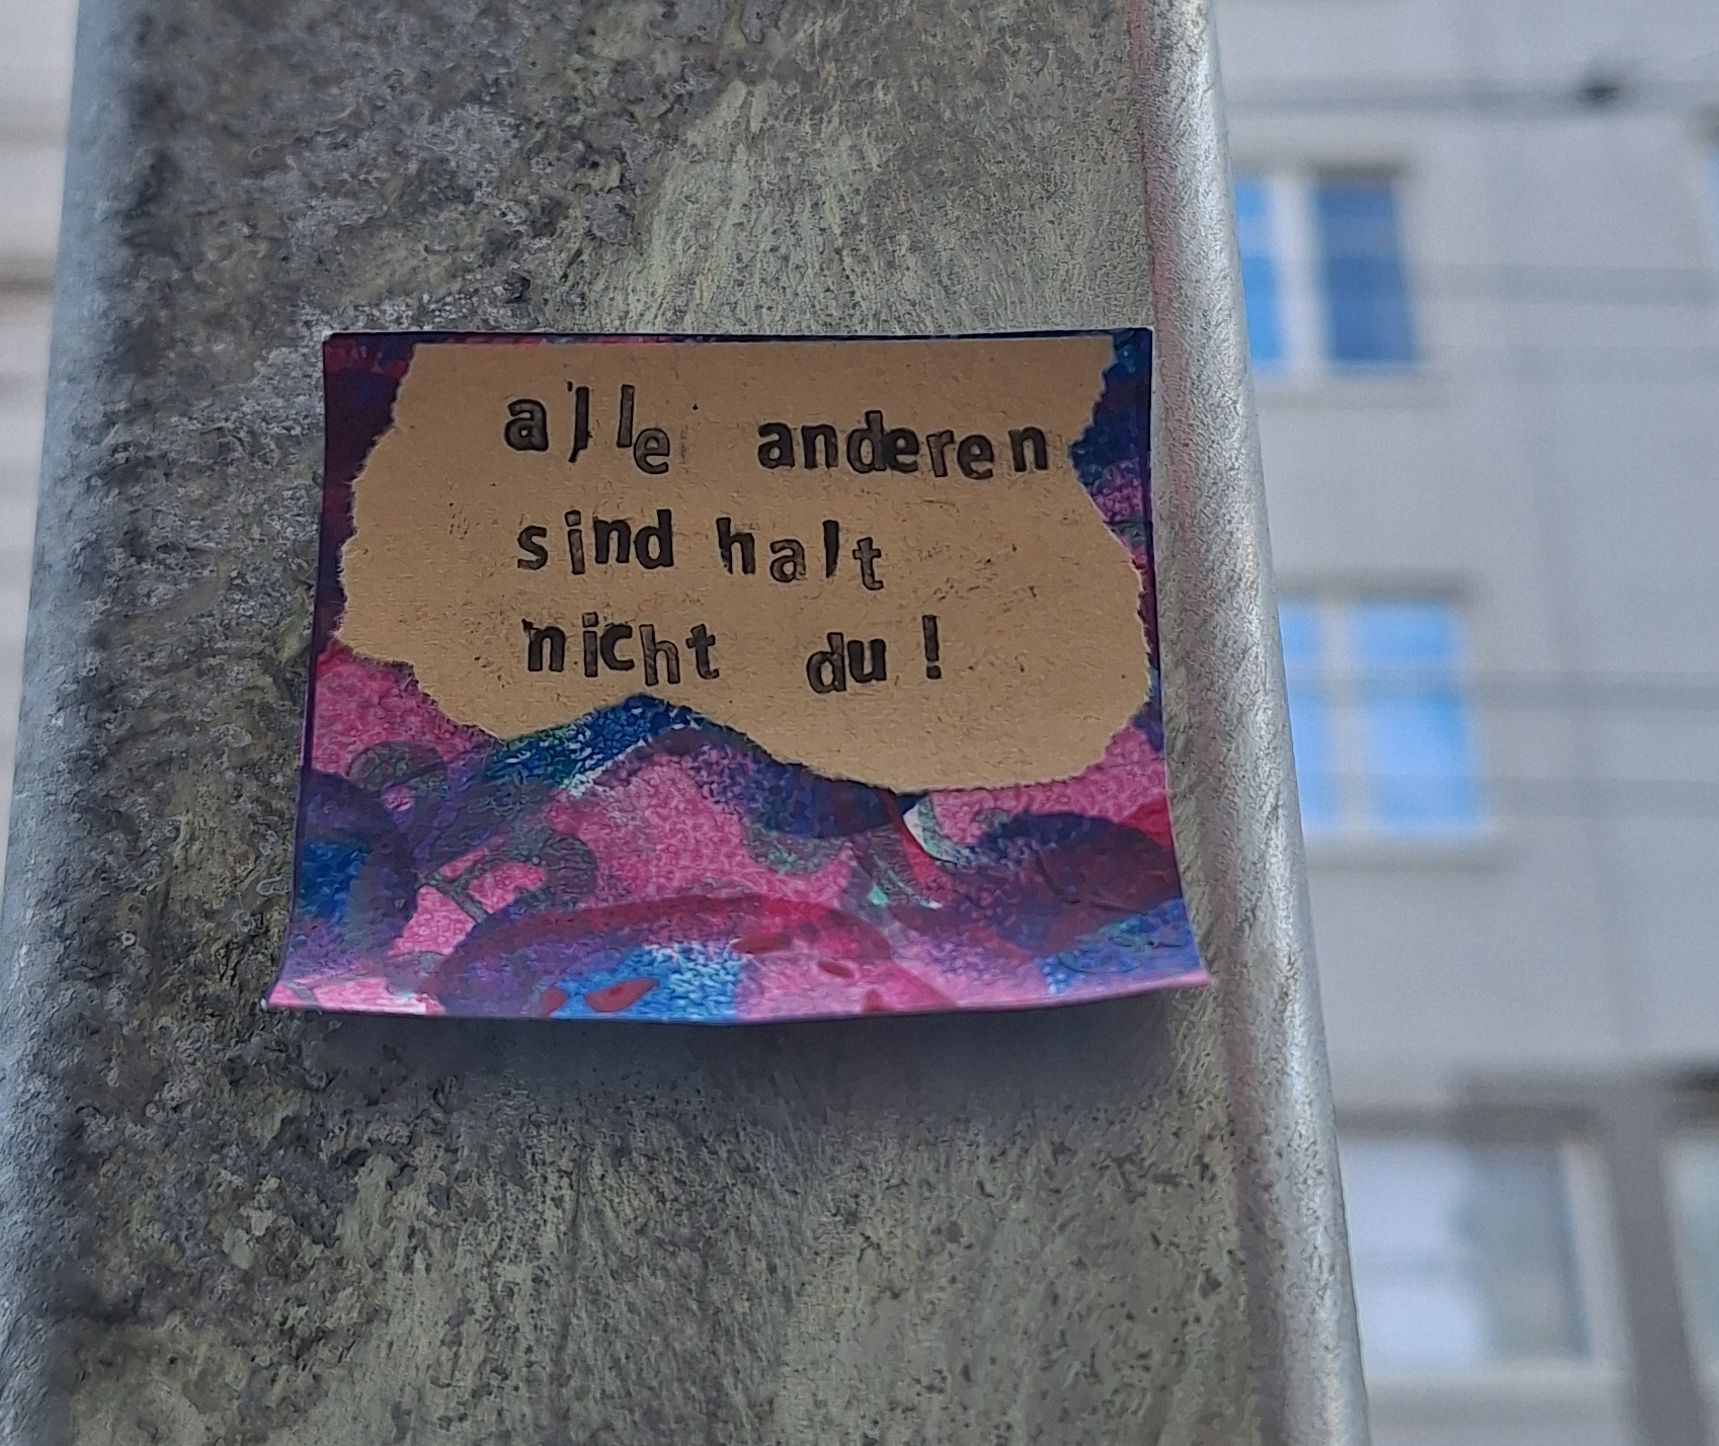 alle anderen
sind halt
nicht du!